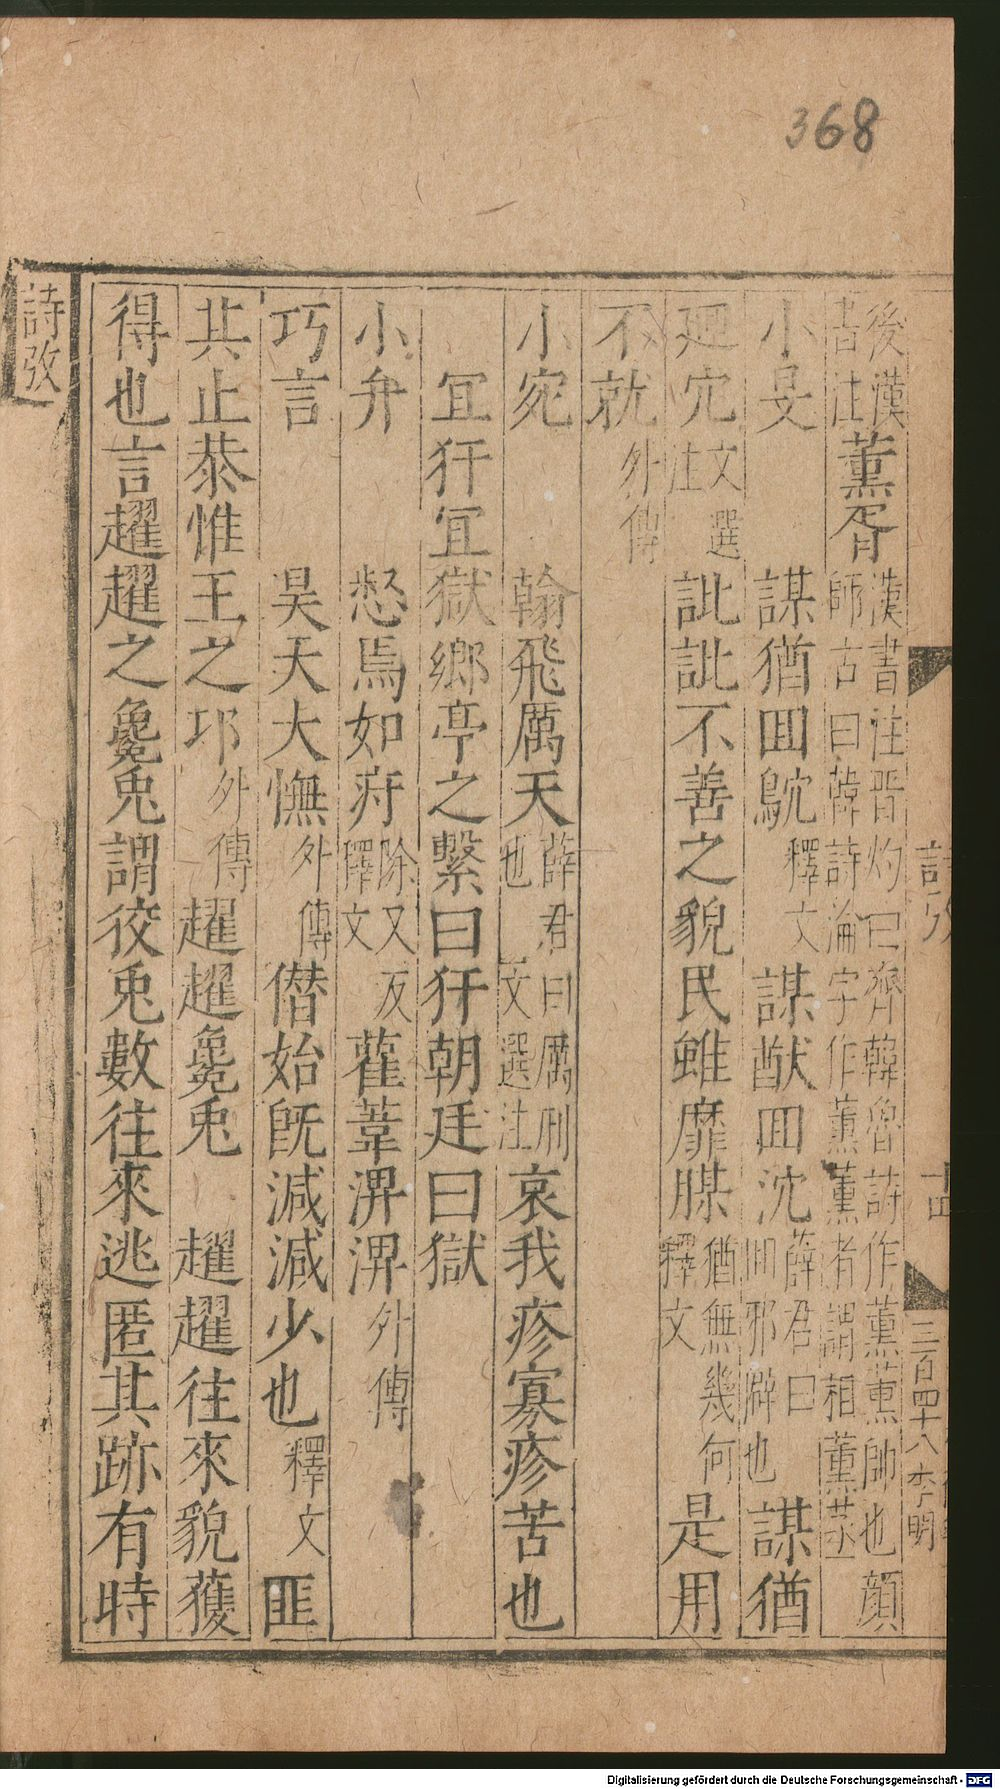 368
後漢書注薰胥漢書注晋灼曰齊韓魯詩作薰薰帥也顔師古曰韓詩淪字作薰薰者謂相薰蒸
小旻 謀猶囬鴥釋文 謀猷囬沈薛君曰囬邪辟也 謀猶
廻宂文選注 訿訿不善之貌民雖靡腜猶無幾何釋文 是用
不就外傳
小宛 翰飛厲天薛君曰厲附也 文選注 哀我疹寡疹苦也
宜犴宜獄鄉亭之繫曰犴朝廷曰獄
小弁 惄焉如疛除又反釋文 雚葦淠淠外傳
巧言 昊天大憮外傳 僭始旣減減少也釋文 匪
其止恭惟王之邛外傳 趯趯毚兎 趯趯往來貌蒦
得也言趯趯之毚兎謂狡兎數往來逃匿其跡有時
詩攷
詩攷
十四
三百四十八
李明
Digitalisierung gefördert durch die Deutsche Forschungsgemeinschaft - DFG